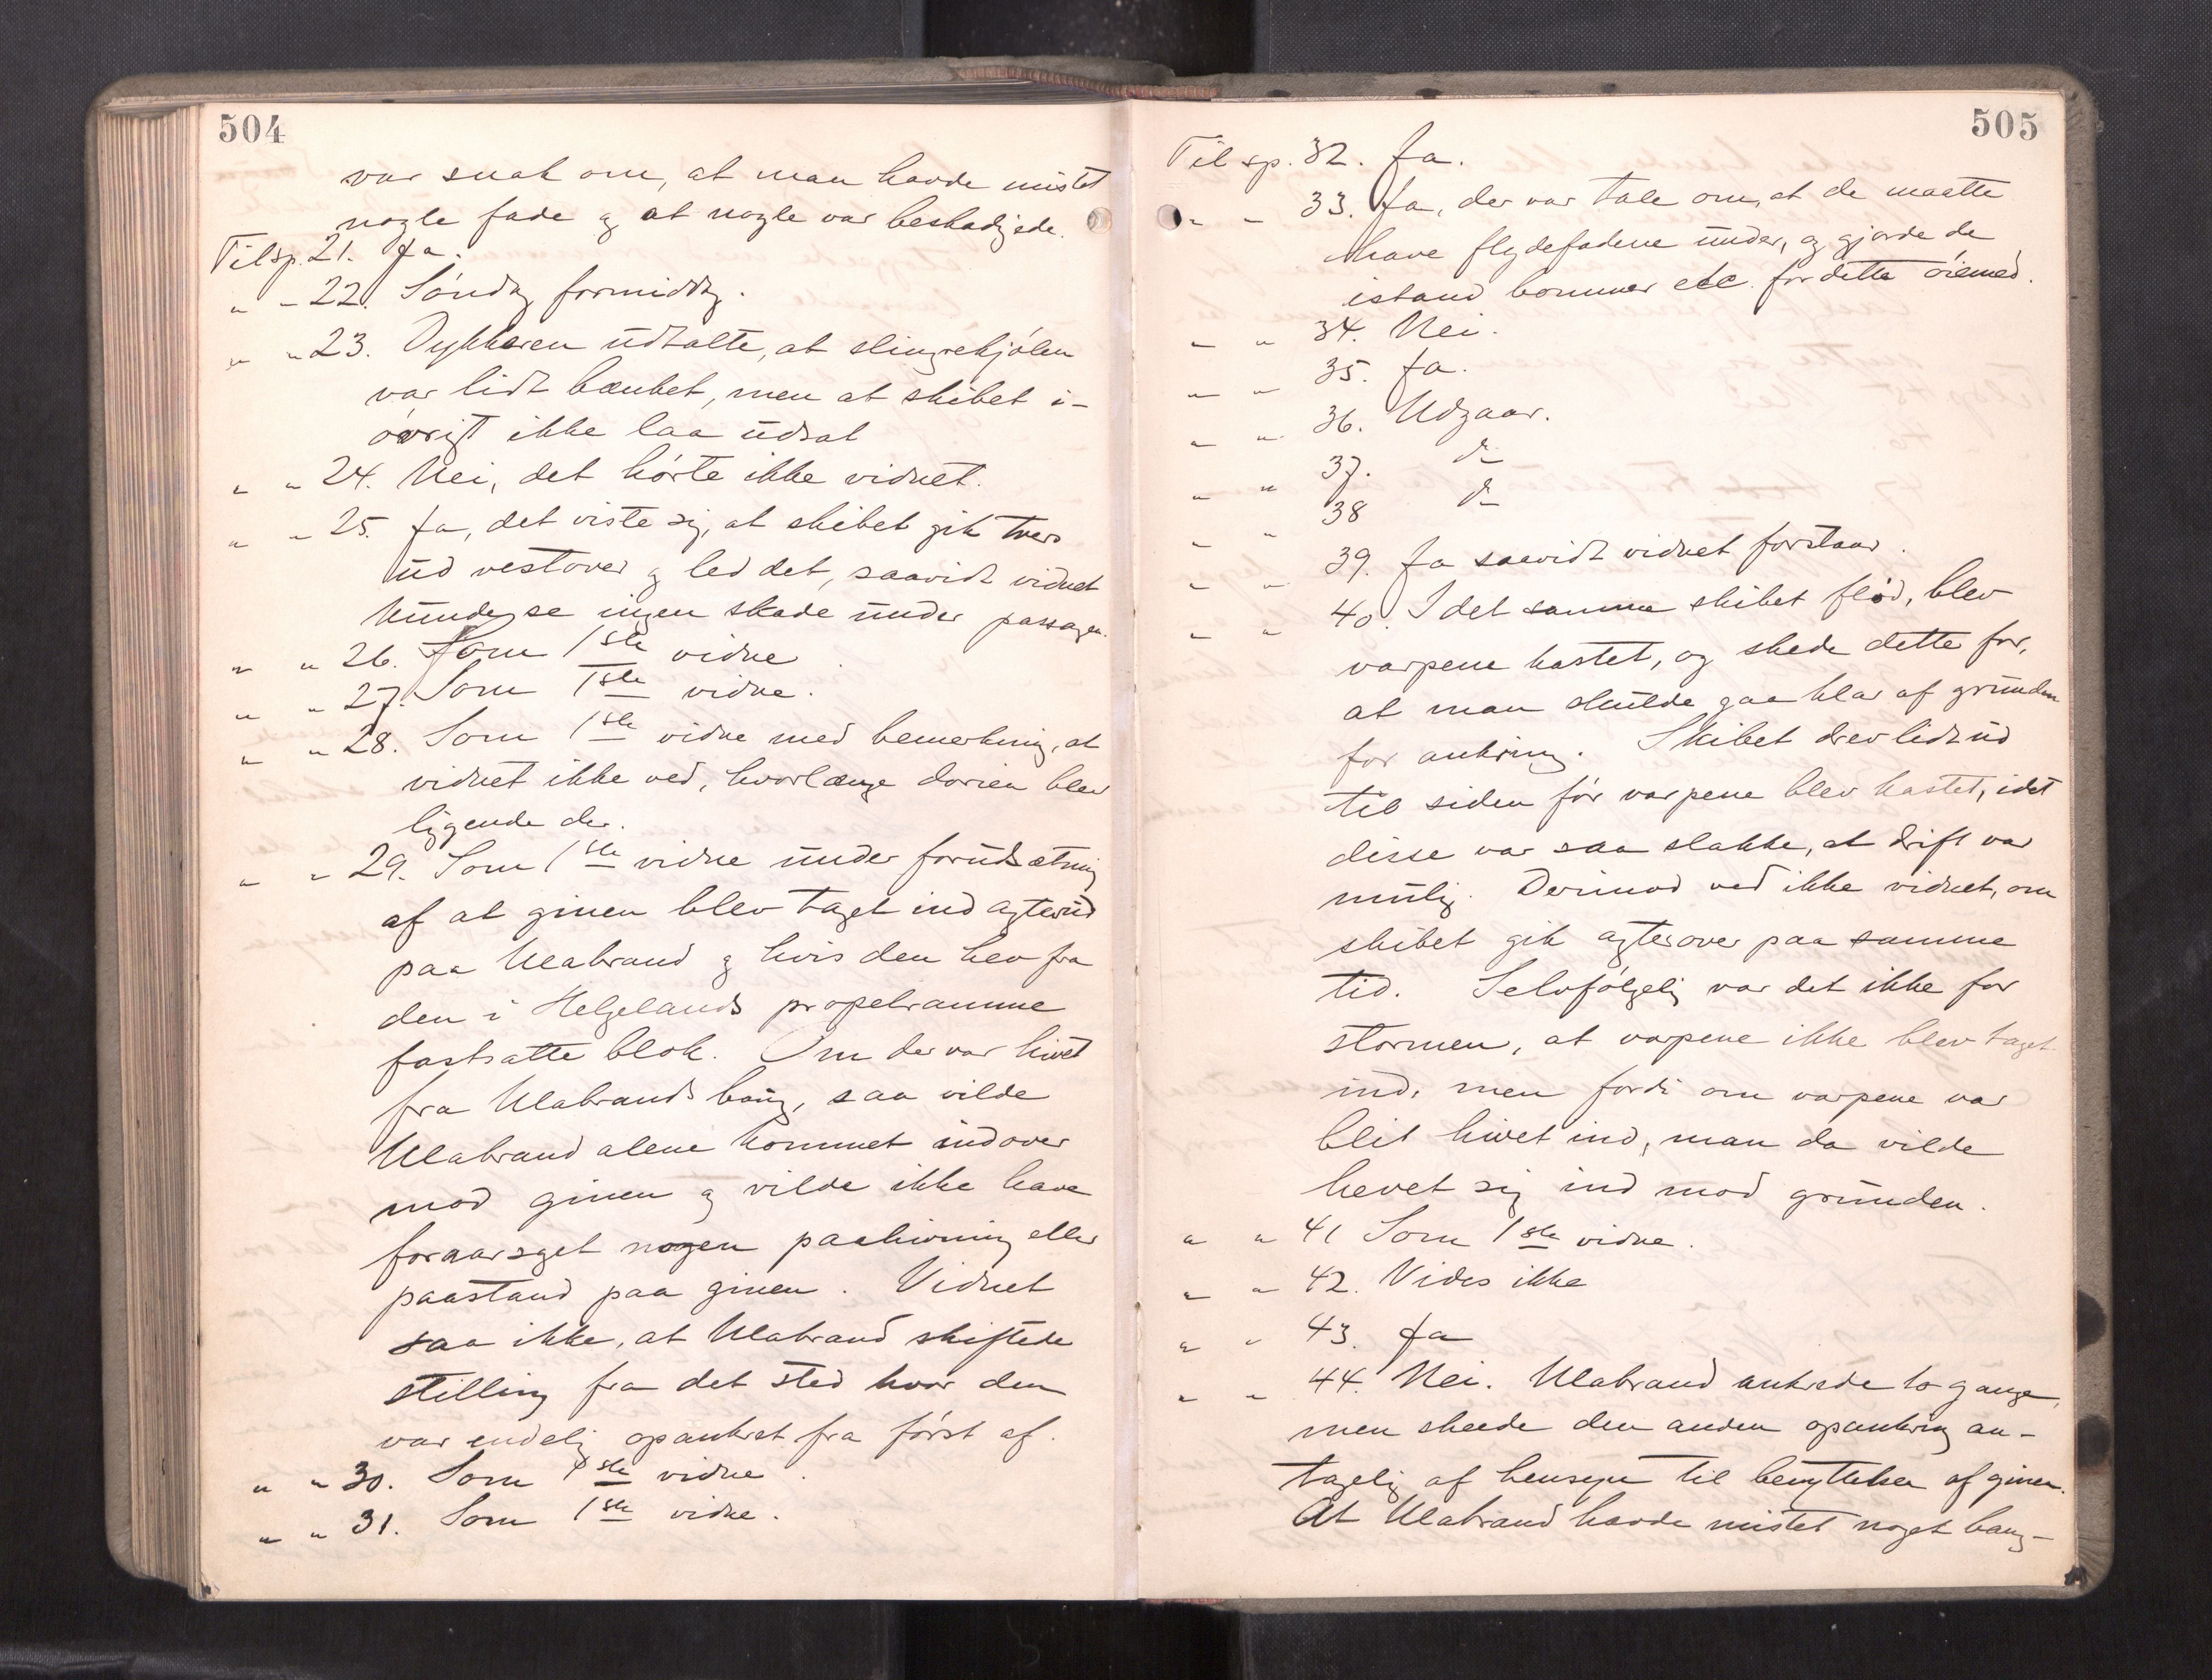 504
var snak om, at man havde mistet
nogle fade og at nogle var beskadigede.
Til sp. 21. Ja.
" " 22. Søndag formiddag.
" " 23. Dykkeren udtalte, at slingrekjølen
var lidt bænket, men at skibet i-
øvrigt ikke laa udsat
" " 24. Nei, det hørte ikke vidnet.
" " 25. Ja, det viste sig, at skibet gik tvers
ud vestover og led det, saavidt vidnet
kunde se ingen skade under passagen.
" " 26. Som 1ste vidne.
" " 27. Som 1ste vidne.
" " 28. Som 1ste vidne med bemerkning, at
vidnet ikke ved, hvorlænge dorien blev
liggende der.
" " 29. Som 1ste vidne under forudsætning
af at ginen blev taget ind agterud
paa Ulabrand og hvis den hev fra
den i Helgelands propelramme
fastsatte blok. Om der var hivet
fra Ulabrands baug, saa vilde
Ulabrand alene kommet indover
mod ginen og vilde ikke have
foraarsaget nogen paahivning eller
paastand paa ginen. Vidnet
saa ikke, at Ulabrand skiftede
stilling fra det sted hvor den
var endelig opankret fra først af.
" " 30. Som 1ste vidne.
" " 31. Som 1ste vidne.
505
Til sp. 32. Ja.
" " 33. Ja, der var tale om, at de maatte
have flydefadene under, og gjorde de
istand bommer etc. for dette øiemed.
" " 34. Nei.
" " 35. Ja.
" " 36. Udgaar.
" " 37. do
" " 38 do
" " 39. Ja saavidt vidnet forstaar.
" " 40. I det samme skibet fløid, blev
varpene kastet, og skede dette for,
at man skulde gaa klar af grunden
for ankring. Skibet drev lidt ud
til siden før varpene blev kastet, idet
disse var saa slakke, at drift var
mulig. Derimod ved ikke vidnet, om
skibet gik agterover paa samme
tid. Selvfølgelig var det ikke for
stormen, at varpene ikke blev taget
ind, men fordi om varpene var
blit hivet ind, man da vilde
hevet sig ind mod grunden.
" " 41 Som 1ste vidne.
" " 42. Vides ikke
" " 43. Ja
" " 44. Nei. Ulabrand ankrede to gange,
men skeede den anden opankring an-
tagelig af hensyn til benyttelsen af ginen.
At Ulabrand havde mistet noget baug-